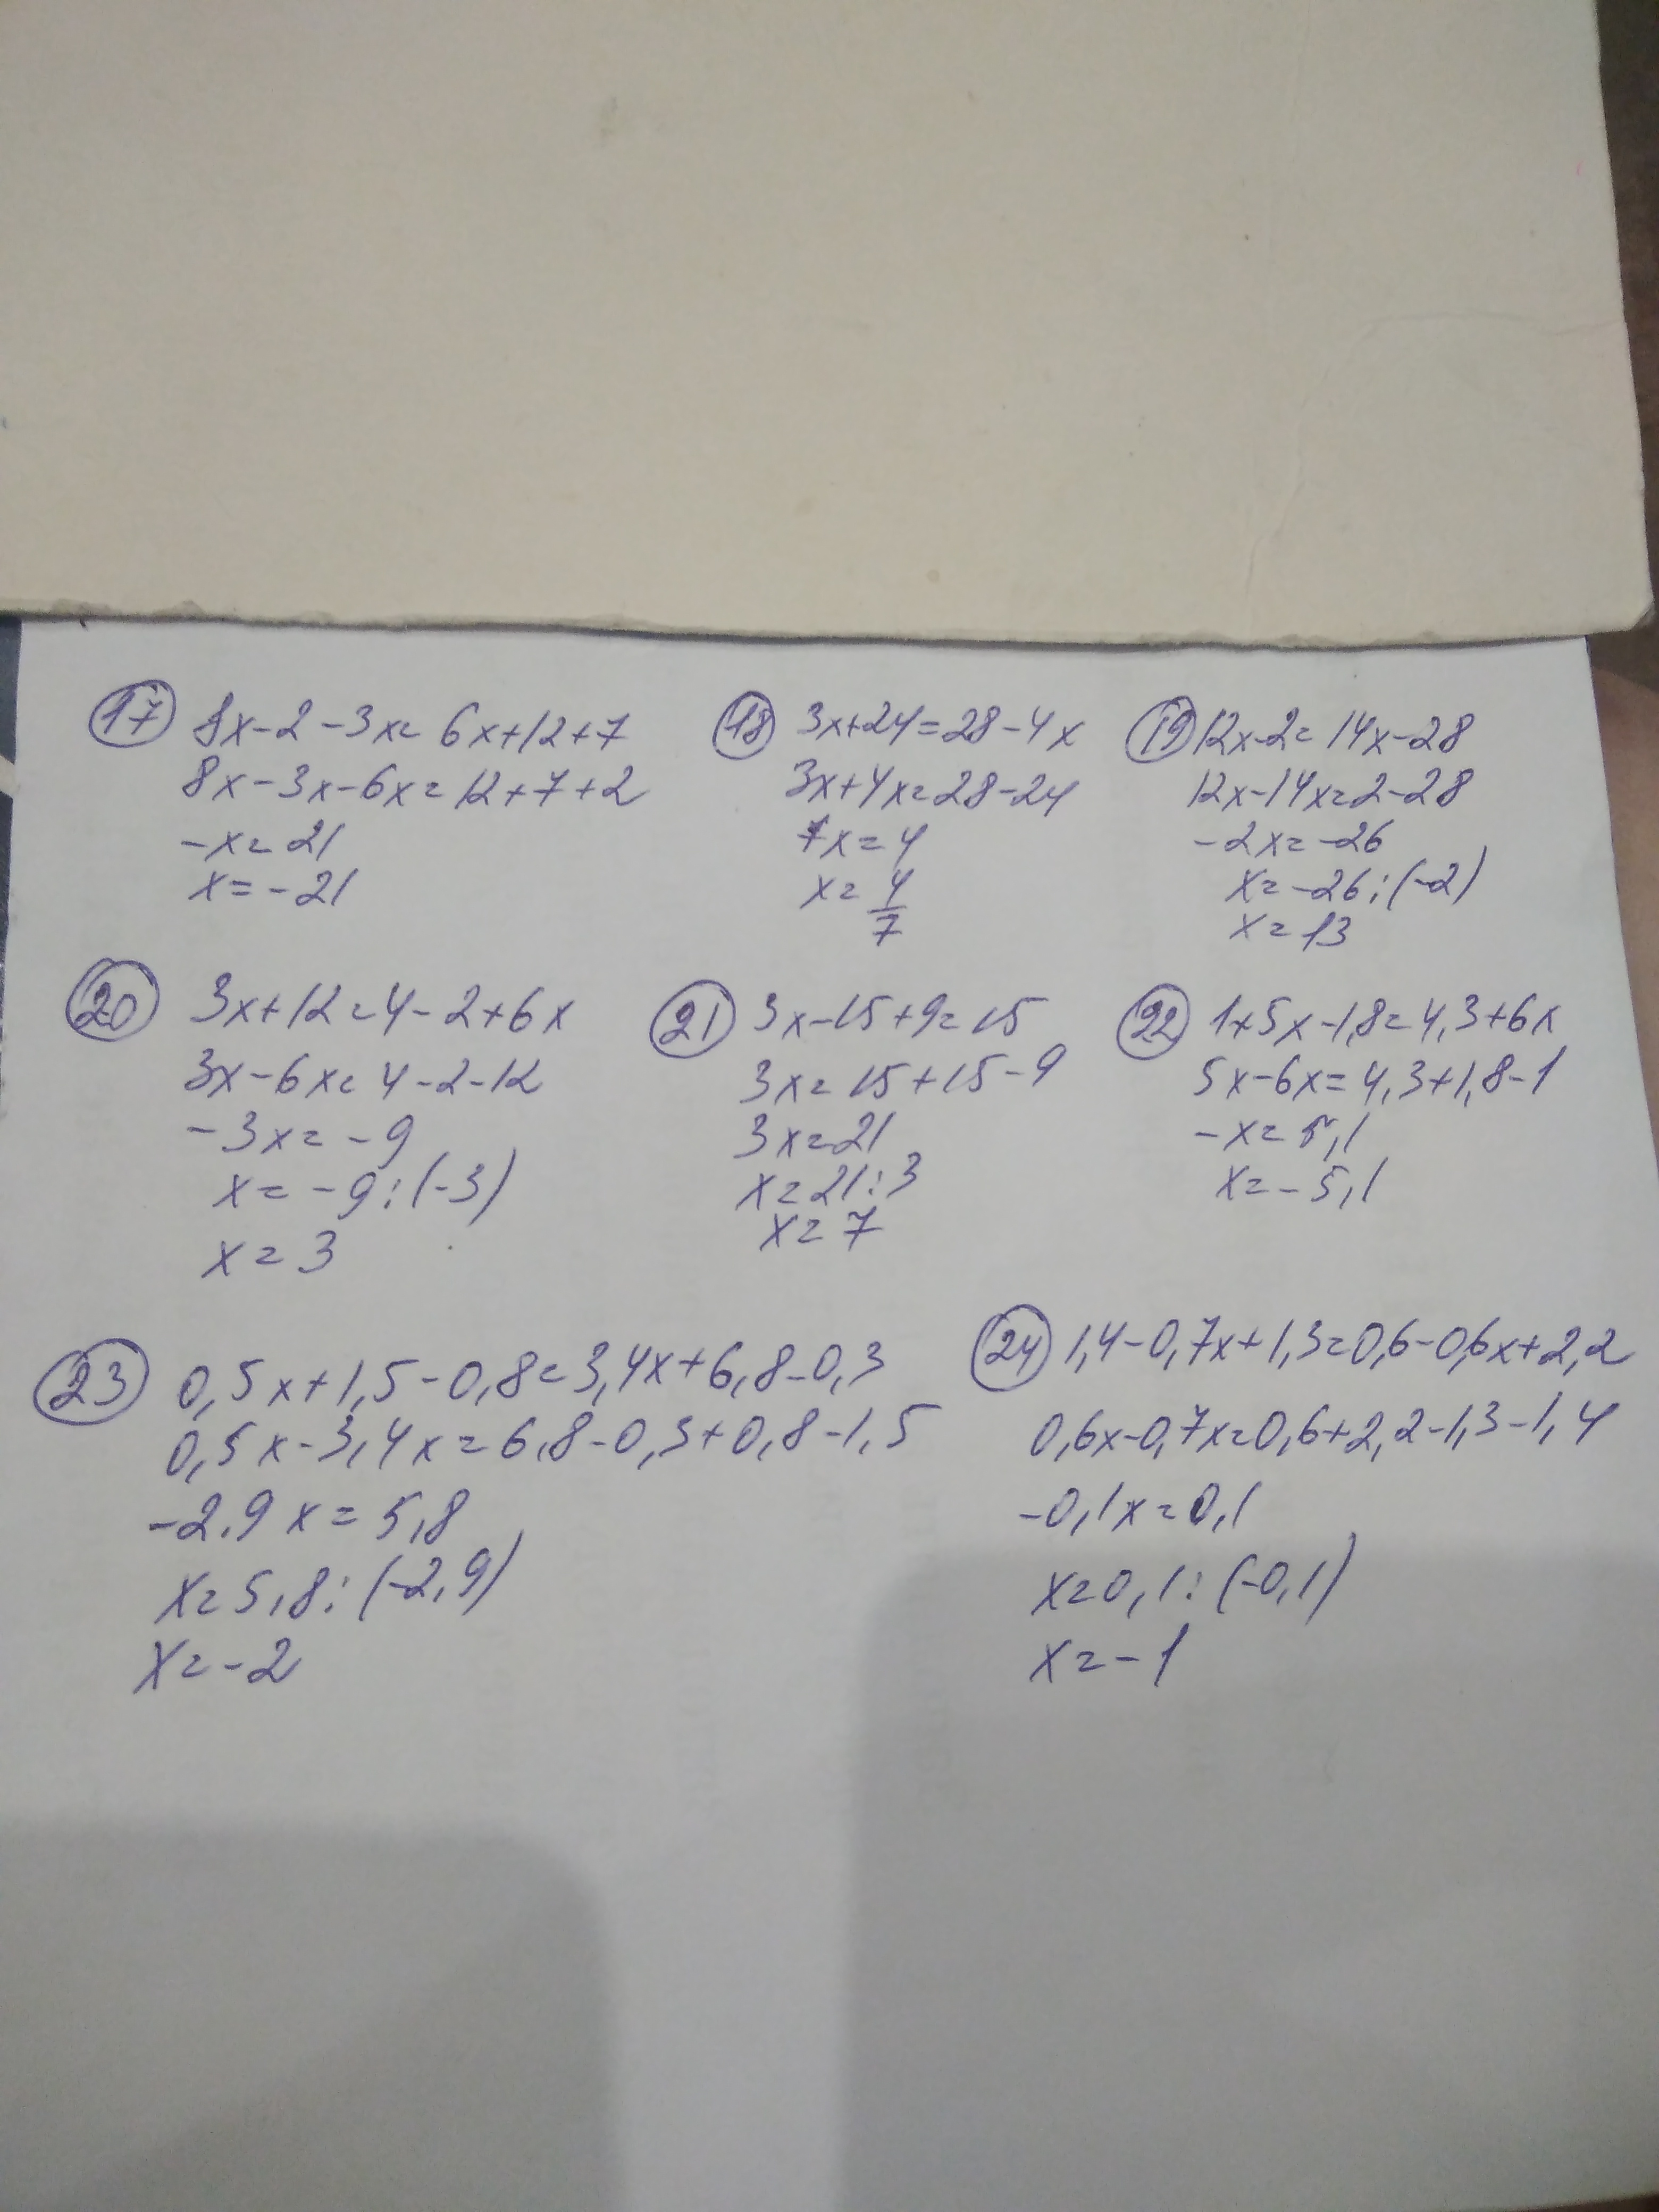 17 8x-2-3x=6x+12+7
8x-3x-6x=12+7+2
-x=21
x=-21
18 3x+24=28-4x
3x+4x=28-24
7x=4
x=4/7
19 12x-2=14x-28
12x-14x=2-28
-2x=-26
x=-26:(-2)
x=13
20 3x+12=4-2+6x
3x-6x=4-2-12
-3x=-9
x=-9:(-3)
x=3
21 3x-15+9=15
3x=15+15-9
3x=21
x=21:3
x=7
22 1+5x-1,8=4,3+6x
5x-6x=4,3+1,8-1
-x=5,1
x=-5,1
23 0,5x+1,5-0,8=3,4x+6,8-0,3
0,5x-3,4x=6,8-0,3+0,8-1,5
-2,9x=5,8
x=5,8:(-2,9)
x=-2
24 1,4-0,7x+1,3=0,6-0,6x+2,2
0,6x-0,7x=0,6+2,2-1,3-1,4
-0,1x=0,1
x=0,1:(-0,1)
x=-1